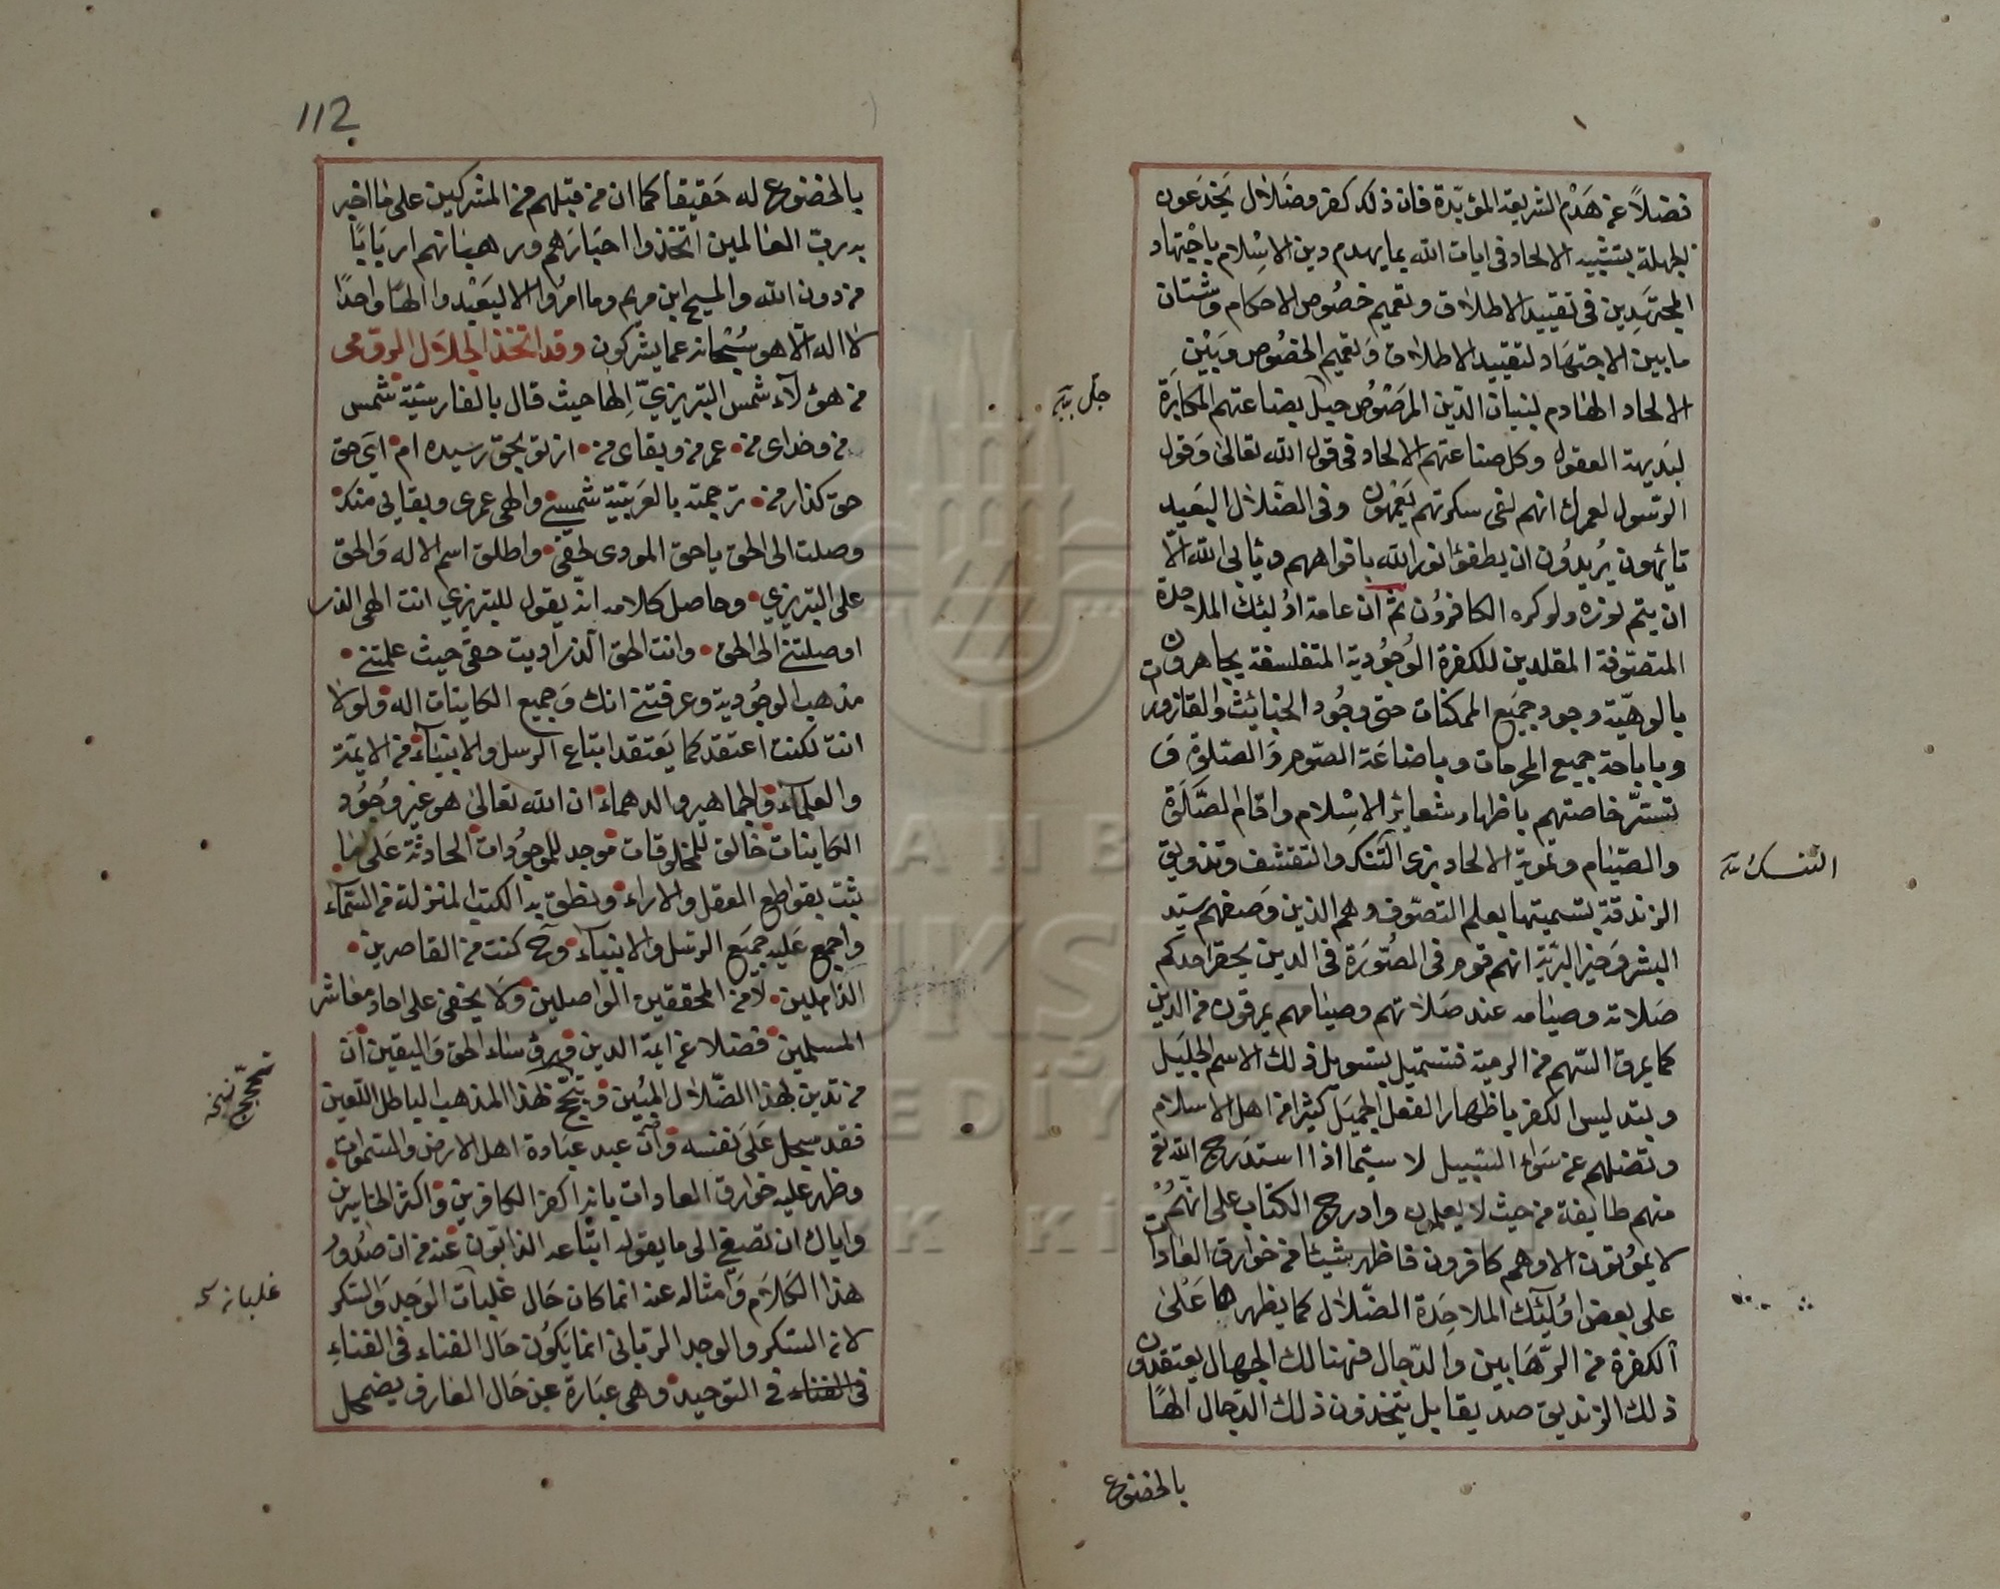 فضلاً عن هَدْم الشريعة المؤيّدة فان ذلك كفر وضَلال يَخدَعون
الجهلة بتشييد الالحاد فى ايات الله بما يهدم دين الاسْلام باجْتهاد
المجتهَدِين فى تقييد الاطلاق وتعميم خصُوص الاحكام وشتان
ما بين الاجتهَاد لتقييد الاطلاق وَتعميم الخصُوص وبَيْن
الالحاد الهَادم لبنيان الدين المرْصُوص جل بضاعتهم المكابرَة
لبَديهة العقول وكل صناعتهم الالحاد فى قول الله تعالى وَقول
الرّسُول لعمرك انهم لفى سكرتهم يَعْمَهون وفى الضّلال البَعيد
تائهون يُريدُون ان يطفؤا نور الله بافواههم ويأبى الله الاّ
ان يتم نوره ولو كره الكافرُون ثم ان عامة اوُلئك الملاحدة
المتصَوّفة المقلدين للكفرة الوُجُودية المتفلسفة يجاهرون
بالوهيّة وجود جَميَع الممكنات حتى وجُود الخبَائث والقاذورات
وباباحة جميع المحرمات وباضاعَة الصّوم وَالصّلوة وَ
تستّر خاصتهم باظهار شعائر الاسْلام واقام الصَّلَوة
والصّيَام وتمويه الالحاد بزى التّنك والتقشف وتذويق
الزندقة بتسميتها بعلم التصوّف وهم الذين وَصفهم سيّد
البشر وَخير البَريّة انهم قوم فى الصُّورَة فى الدين يحقر احدكم
صَلاته وصيَامه عند صَلاتهم وصيَامهم يمرقون من الدين
كما يمرق السّهم من الرمية فتستميل بتسويل ذلك الاسم الجليَل
وبتدليس الكفر باظهار الفعل الجميَل كثيرًا من اهل الاسلام
وتضلهم عن سَواء السّبيل لا سيّما اذا استدَرج الله تع
منهم طايفة من حيث لا يعلمون وادرج الكتاب على انّهُمْ
لا يموُتون الا وهم كافرون فاظهر شيئا من خوارق العَادات
على بعض اوُلئك الملاحِدَة الضّلال كما يظهرها عَلى
الكفرة من الرّهَابين والدّجال فهنالك الجهال يعتقدون
ذلك الزنديق صديقا بل يتخذون ذلك الدّجال الهًا
بالخضوع
جلّ
التنسك
بالخضوع له حَقيقا كما ان من قبَلهم من المشركين على مَا اخبر
به ربّ العَالمين اتخذوا احبَارَهم ورهبَانهم اربَابًا
من دون الله والمسيح ابن مريم وما امرُوا الا ليَعبْدوا الهًا واحدًا
لا اله الاّ هو سُبْحَانه عما يشركون وقد اتخذ الجلال الرومى
من هؤلآء شمس التبريزيّ اِلها حيث قال بالفارسيّة شمس
من وخداى من عمر من وبقاى من از تو بحق رسيده ام اىَ حق
حق كذار من ترجمته بالعَربيّة شمسى والهى عمرى وبقايى منك
وصلت الى الحق ياحق المودى لحقى واطلق اسم الاله وَالحق
على التبريزي وحاصل كلامه انّه يقول للتبريزي انت الهى الذى
اوصلتنى الى الحق وانت الحق الّذى ادّيت حقى حيث علمتنى
مذهب الوجوُدية وعرفتنى انك وَجميع الكاينات اله ولولا
انت لكنت اعتقد كما يَعتقد اتباع الرسل والانبيآء من الايمّة
والعلمآء والجماهير والدهماء ان الله تعالىٰ هو غير وُجُود
الكاينات خالق للمخلوقات موجد للموجوُدات الحادثة عَلى مَا
ثبت بقواطع العقل والاراء ونطق به الكتب المنزلة من السّمآء
واجمع عَليه جميَع الرسل والانبيآء وح كنت من القاصرين
الذاهلين لا من المحققين الواصلين ولا يخفى على احاد معَاشر
المسلمين فضلا عن ايمة الدين وبرق سناء الحق وَاليقين اَن
من تدين بهذا الضّلال المبُين وبتبجح بهذا المذهب الباطل اللعين
فقد سجل عَلَى نفسه وان عبد عبَادة اهل الارض والسّموات
وظهر عليه خوارق العادات بانه اكفر الكافرين واكثر الخاسرين
واياك ان تصغى الى ما يقوله اتباعه الذابّون عنه من ان صدُور
هذا الكلاَم وَامثاله عنه انما كان حَال غلبَات الوَجد وَالسّكر
لان السّكر والوجد الربّانى انما يَكوُن حَال الفناء فى الفناءِ
فى الفناء فى التوحيد وهى عبَارة عن حَال العَارف يضمحل
تبجح نسخه
غلبانه نسخه
112